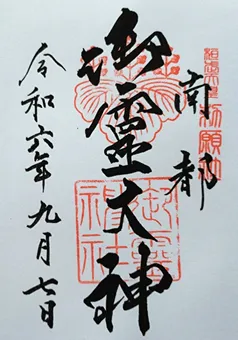 南都
御霊大神
令和六年九月七日
御霊神社